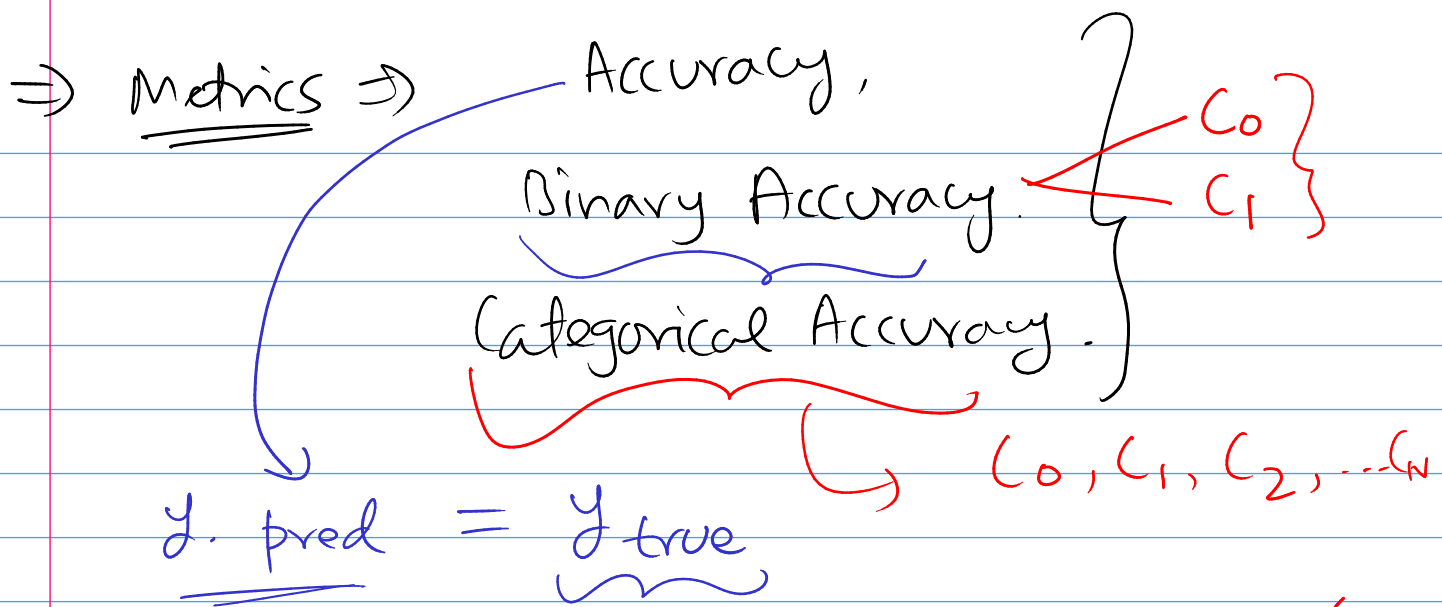 ⇒ Metrics ⇒ Accuracy,
Binary Accuracy.
C0
C1
Categorical Accuracy.
C0, C1, C2, ...CN
y. pred = y true